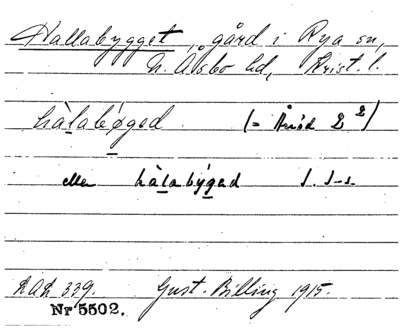 Hallabygget, gård i Rya sn,
N. Åsbo hd, Krist. l.
hàlabøged (= Änöd 2 2)
eller hàlabýged s. s-s.
LAL 339. Gust. Billing 1915.
Nr 5502.